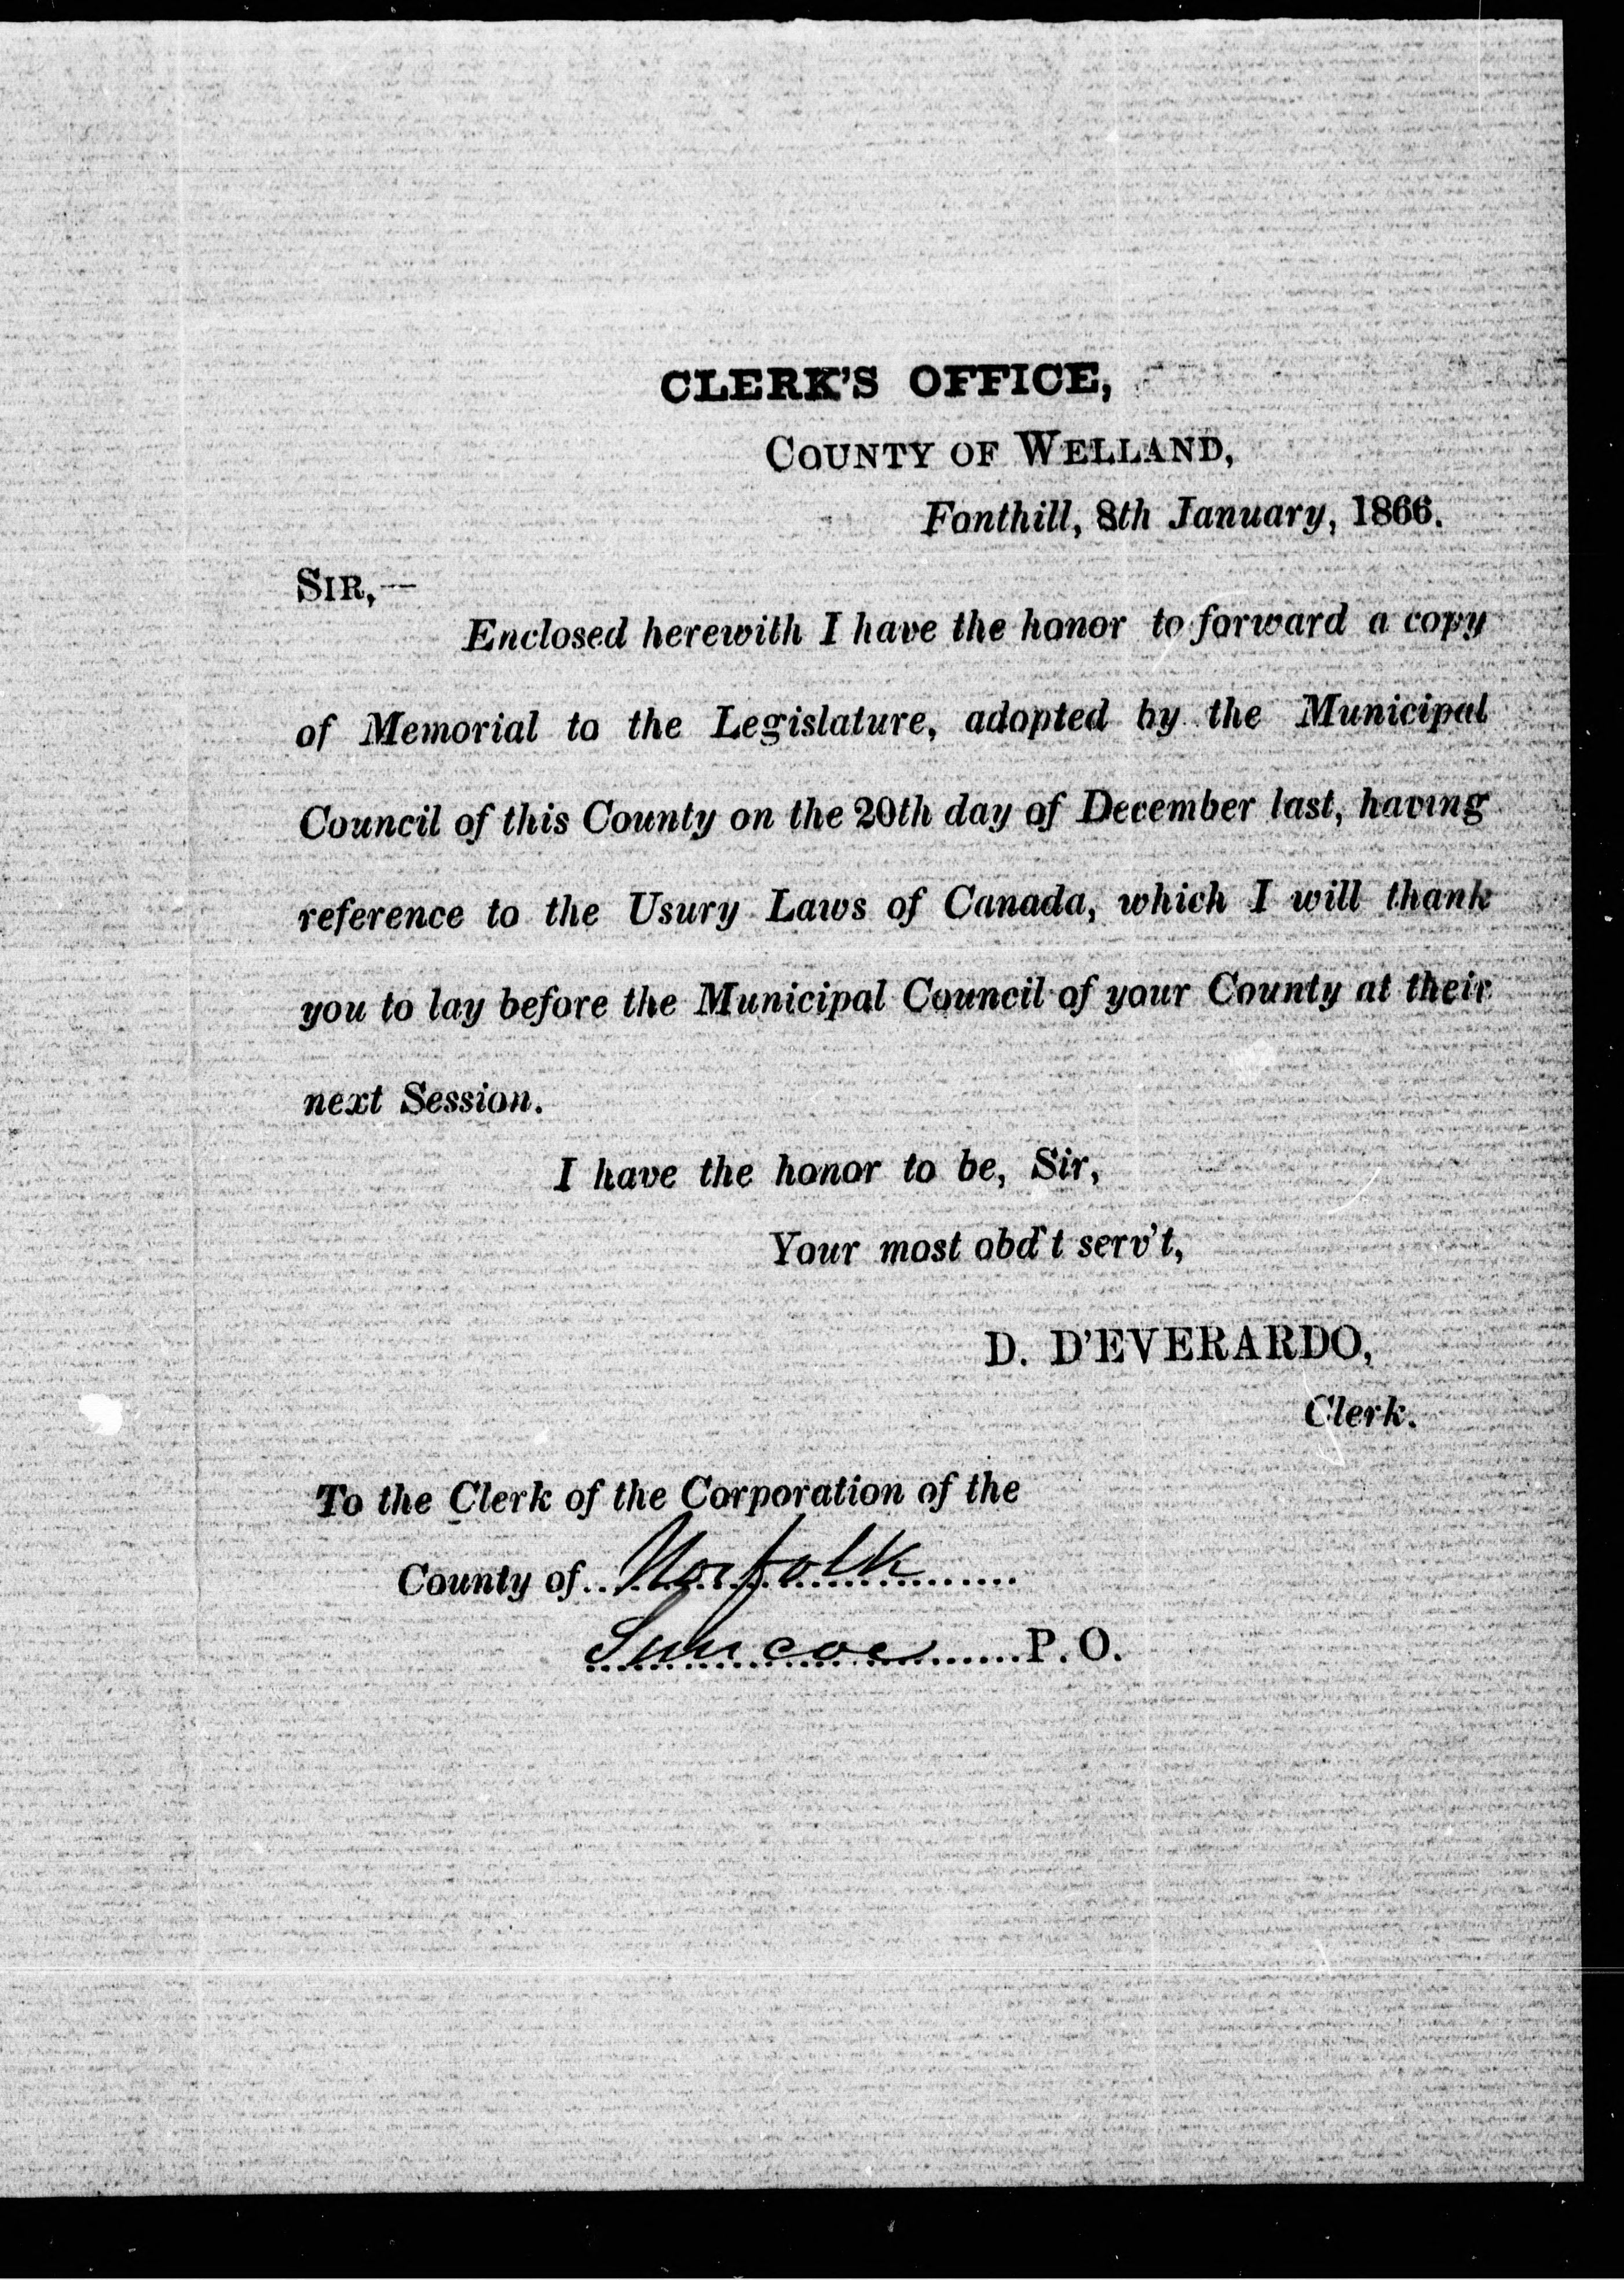 CLERK'S OFFICE,
COUNTY OF WELLAND,
Fonthill, 8th January, 1866.
SIR,—
Enclosed herewith I have the honor to forward a copy
of Memorial to the Legislature, adopted by the Municipal
Council of this County on the 20th day of December last, having
reference to the Usury Laws of Canada, which I will thank
you to lay before the Municipal Council of your County at their
next Session.
I have the honor to be, Sir,
Your most obd't serv't,
D. D'EVERARDO,
Clerk.
To the Clerk of the Corporation of the
County of Norfolk
Simcoe P. O.